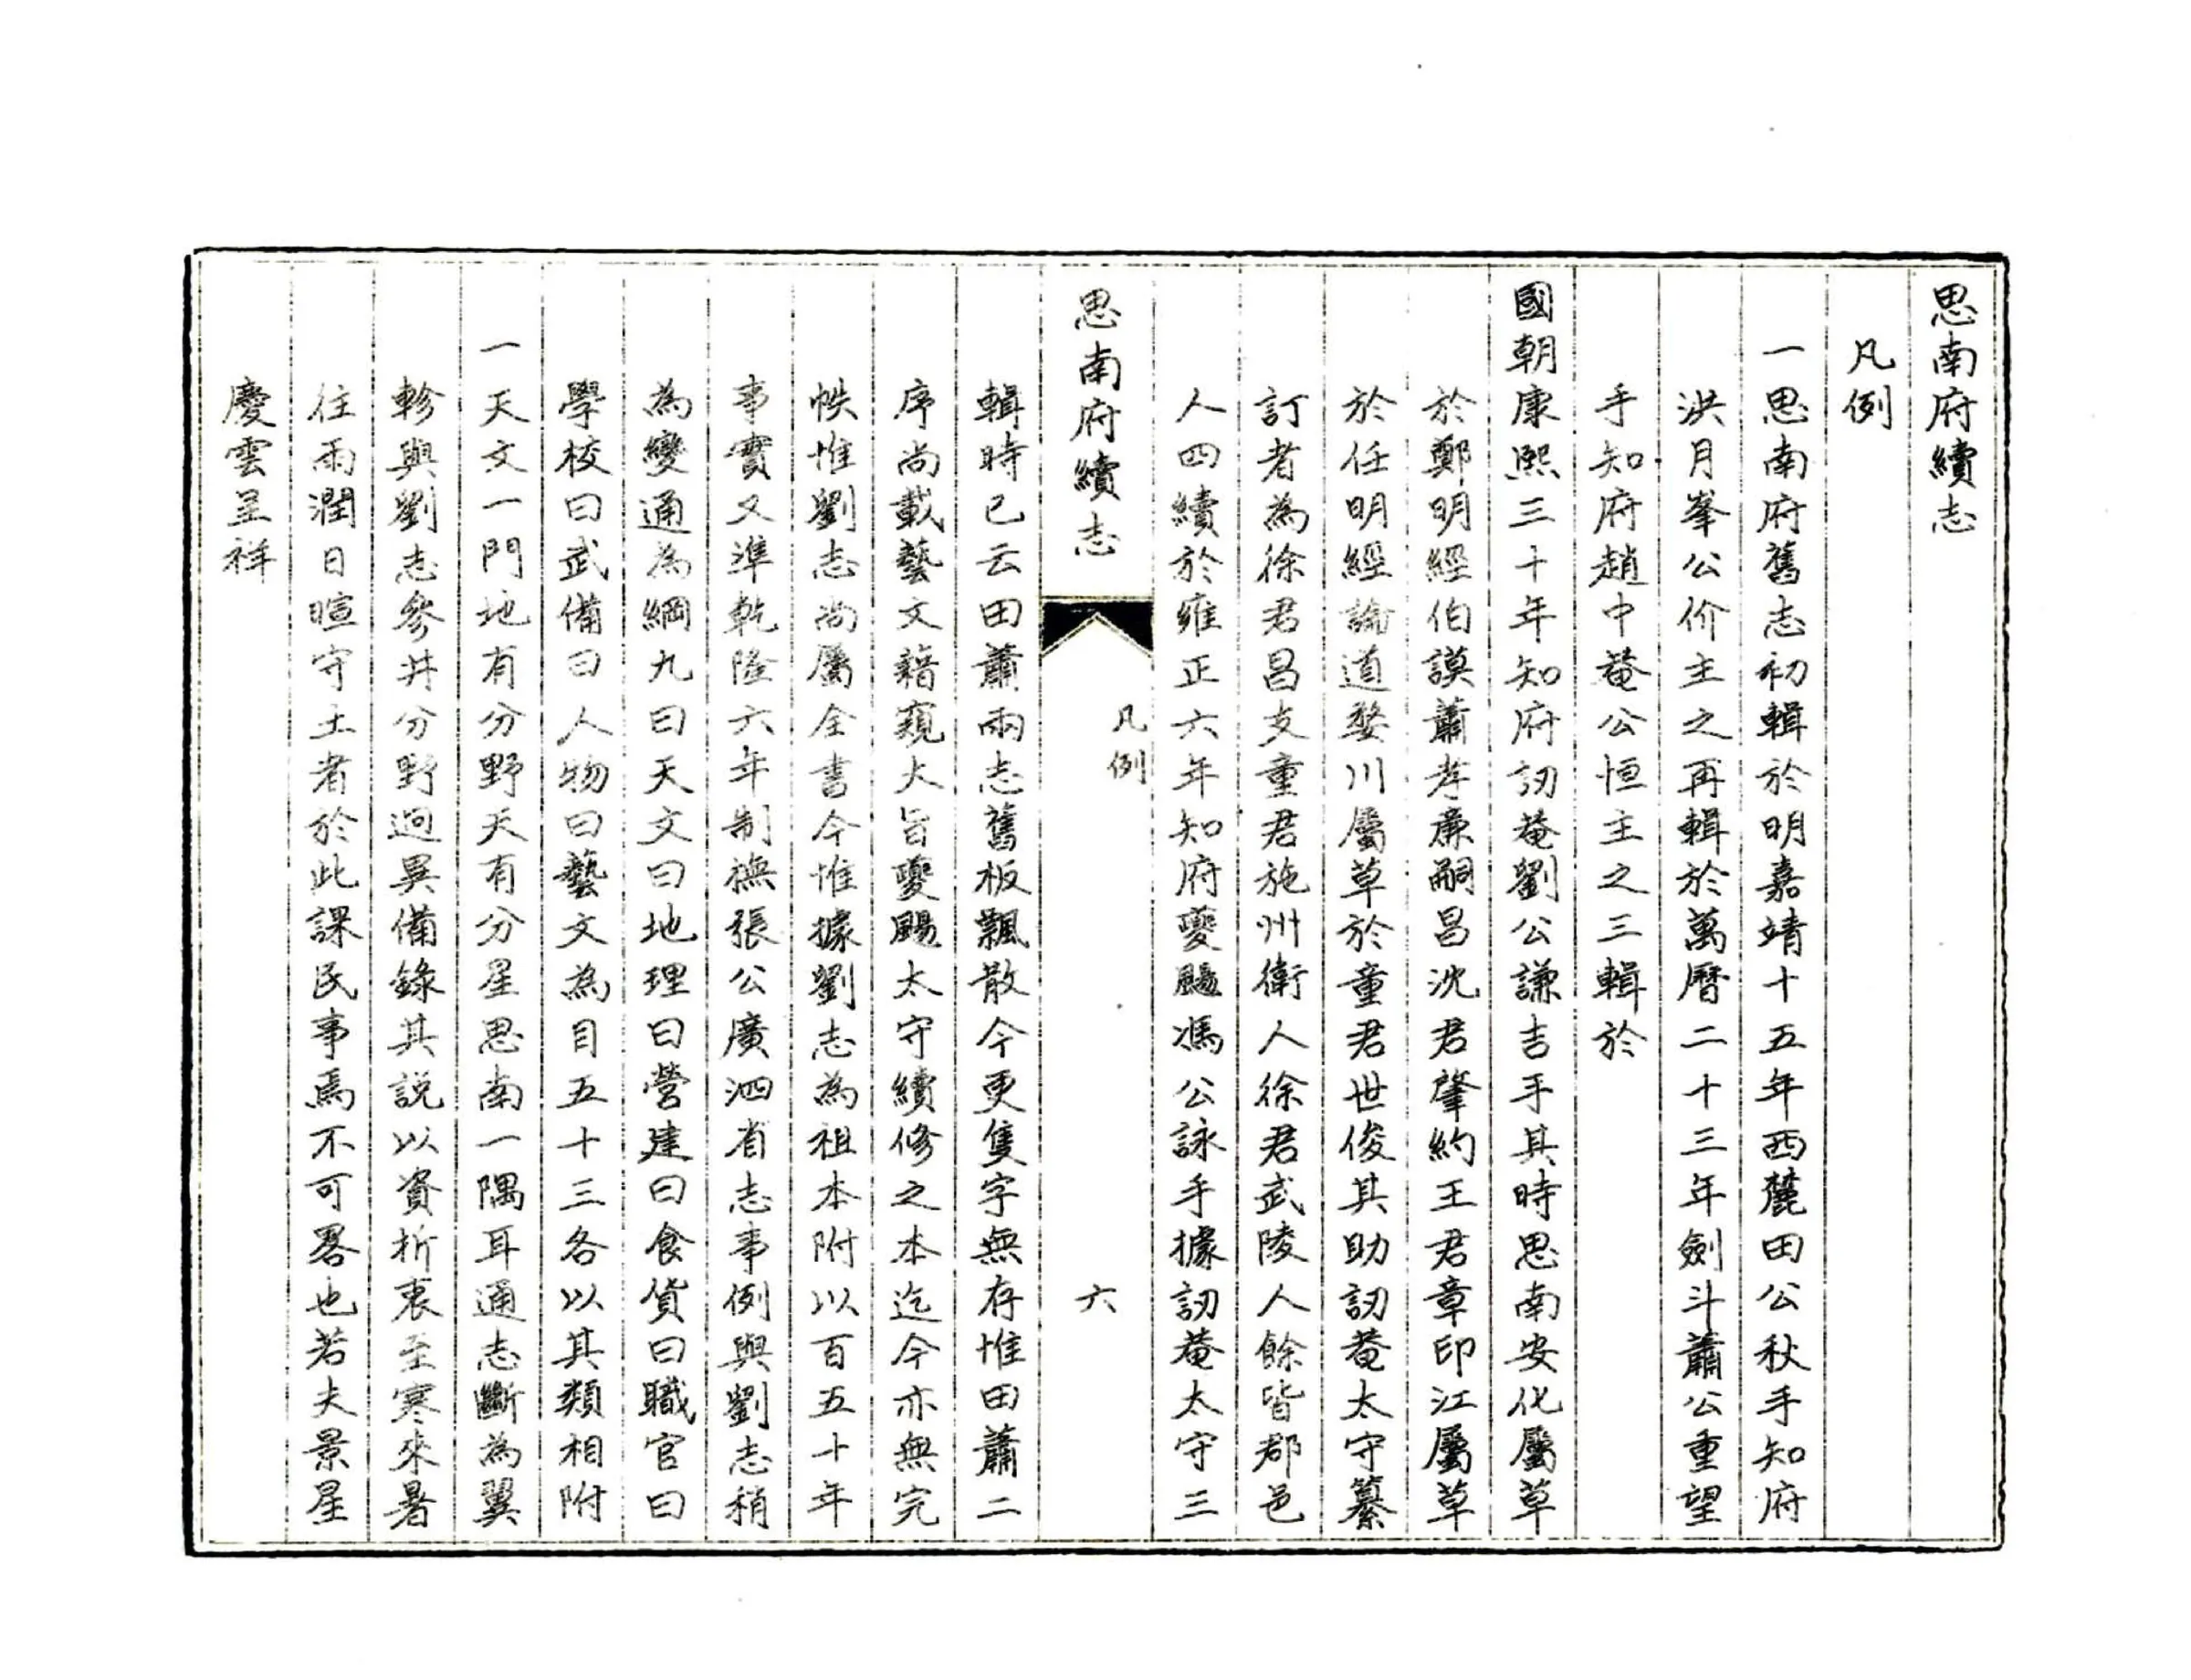 思南府續志
凡例
一思南府舊志初輯於明嘉靖十五年西麓田公秋手知府
洪月峯公价主之再輯於萬曆二十三年劍斗蕭公重望
手知府趙中菴公恒主之三輯於
國朝康熙三十年知府訒菴劉公謙吉手其時思南安化屬草
於鄭明經伯謨蕭孝廉嗣昌沈君肇約王君章印江屬草
於任明經論道婺川屬草於童君世俊其助訒菴太守纂
訂者為徐君昌支童君施州衛人徐君武陵人餘皆郡邑
人四續於雍正六年知府夔颺馮公詠手據訒菴太守三
思南府續志
凡例
六
輯時已云田蕭兩志舊板飄散今更隻字無存惟田蕭二
序尚載藝文藉窺大旨夔颺太守續修之本迄今亦無完
帙惟劉志尚屬全書今惟據劉志為祖本附以百五十年
事實又準乾隆六年制撫張公廣泗省志事例與劉志稍
為變通為綱九曰天文曰地理曰營建曰食貨曰職官曰
學校曰武備曰人物曰藝文為目五十三各以其類相附
一天文一門地有分野天有分星思南一隅耳通志斷為翼
軫與劉志參井分野迥異備錄其説以資折衷至寒來暑
往雨潤日暄守土者於此課民事焉不可畧也若夫景星
慶雲呈祥